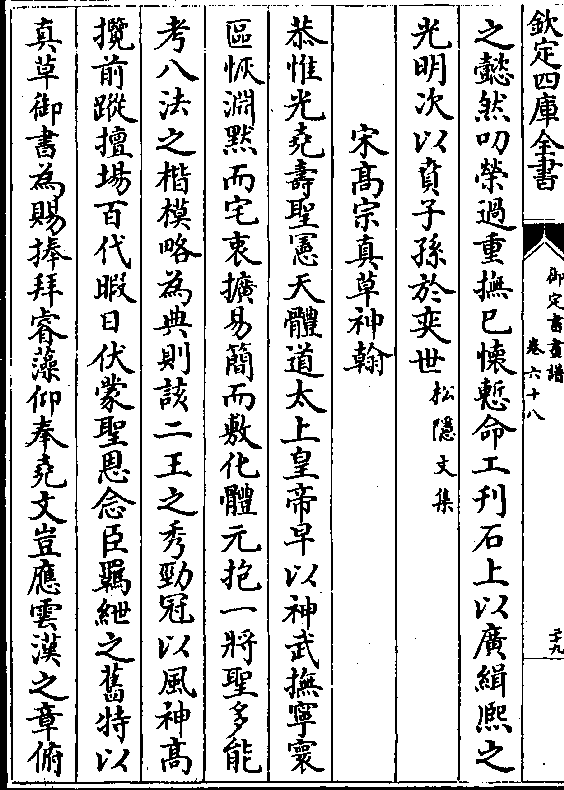 欽定四庫全書
御定書畫譜
卷六十八
二十九
之懿然叨榮過重撫已懷慙命工刊石上以廣緝熙之
光明次以賁子孫於奕世松隱文集
宋髙宗真草神翰
恭惟光堯壽聖憲天體道太上皇帝早以神武撫寧寰
區恢淵黙而宅衷擴易簡而敷化體元抱一將聖多能
考八法之楷模略為典則該二王之秀勁冠以風神髙
攬前蹤擅場百代暇日伏蒙聖恩念臣羈紲之舊特以
真草御書為賜捧拜睿藻仰奉堯文豈應雲漢之章俯